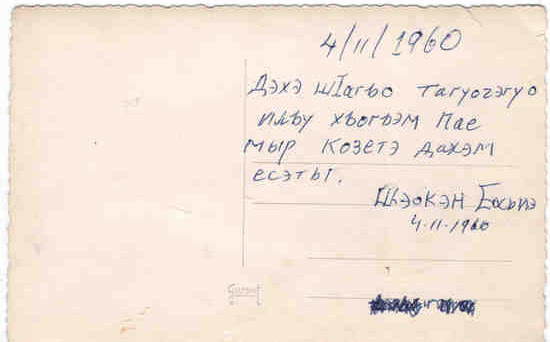 4/11/1960
Дэхэ шIагъо тагуогэгуо
илъу хъогъэм пае
мыр козетэ дахэм
есэты.
Шэокэн
4-11-1960